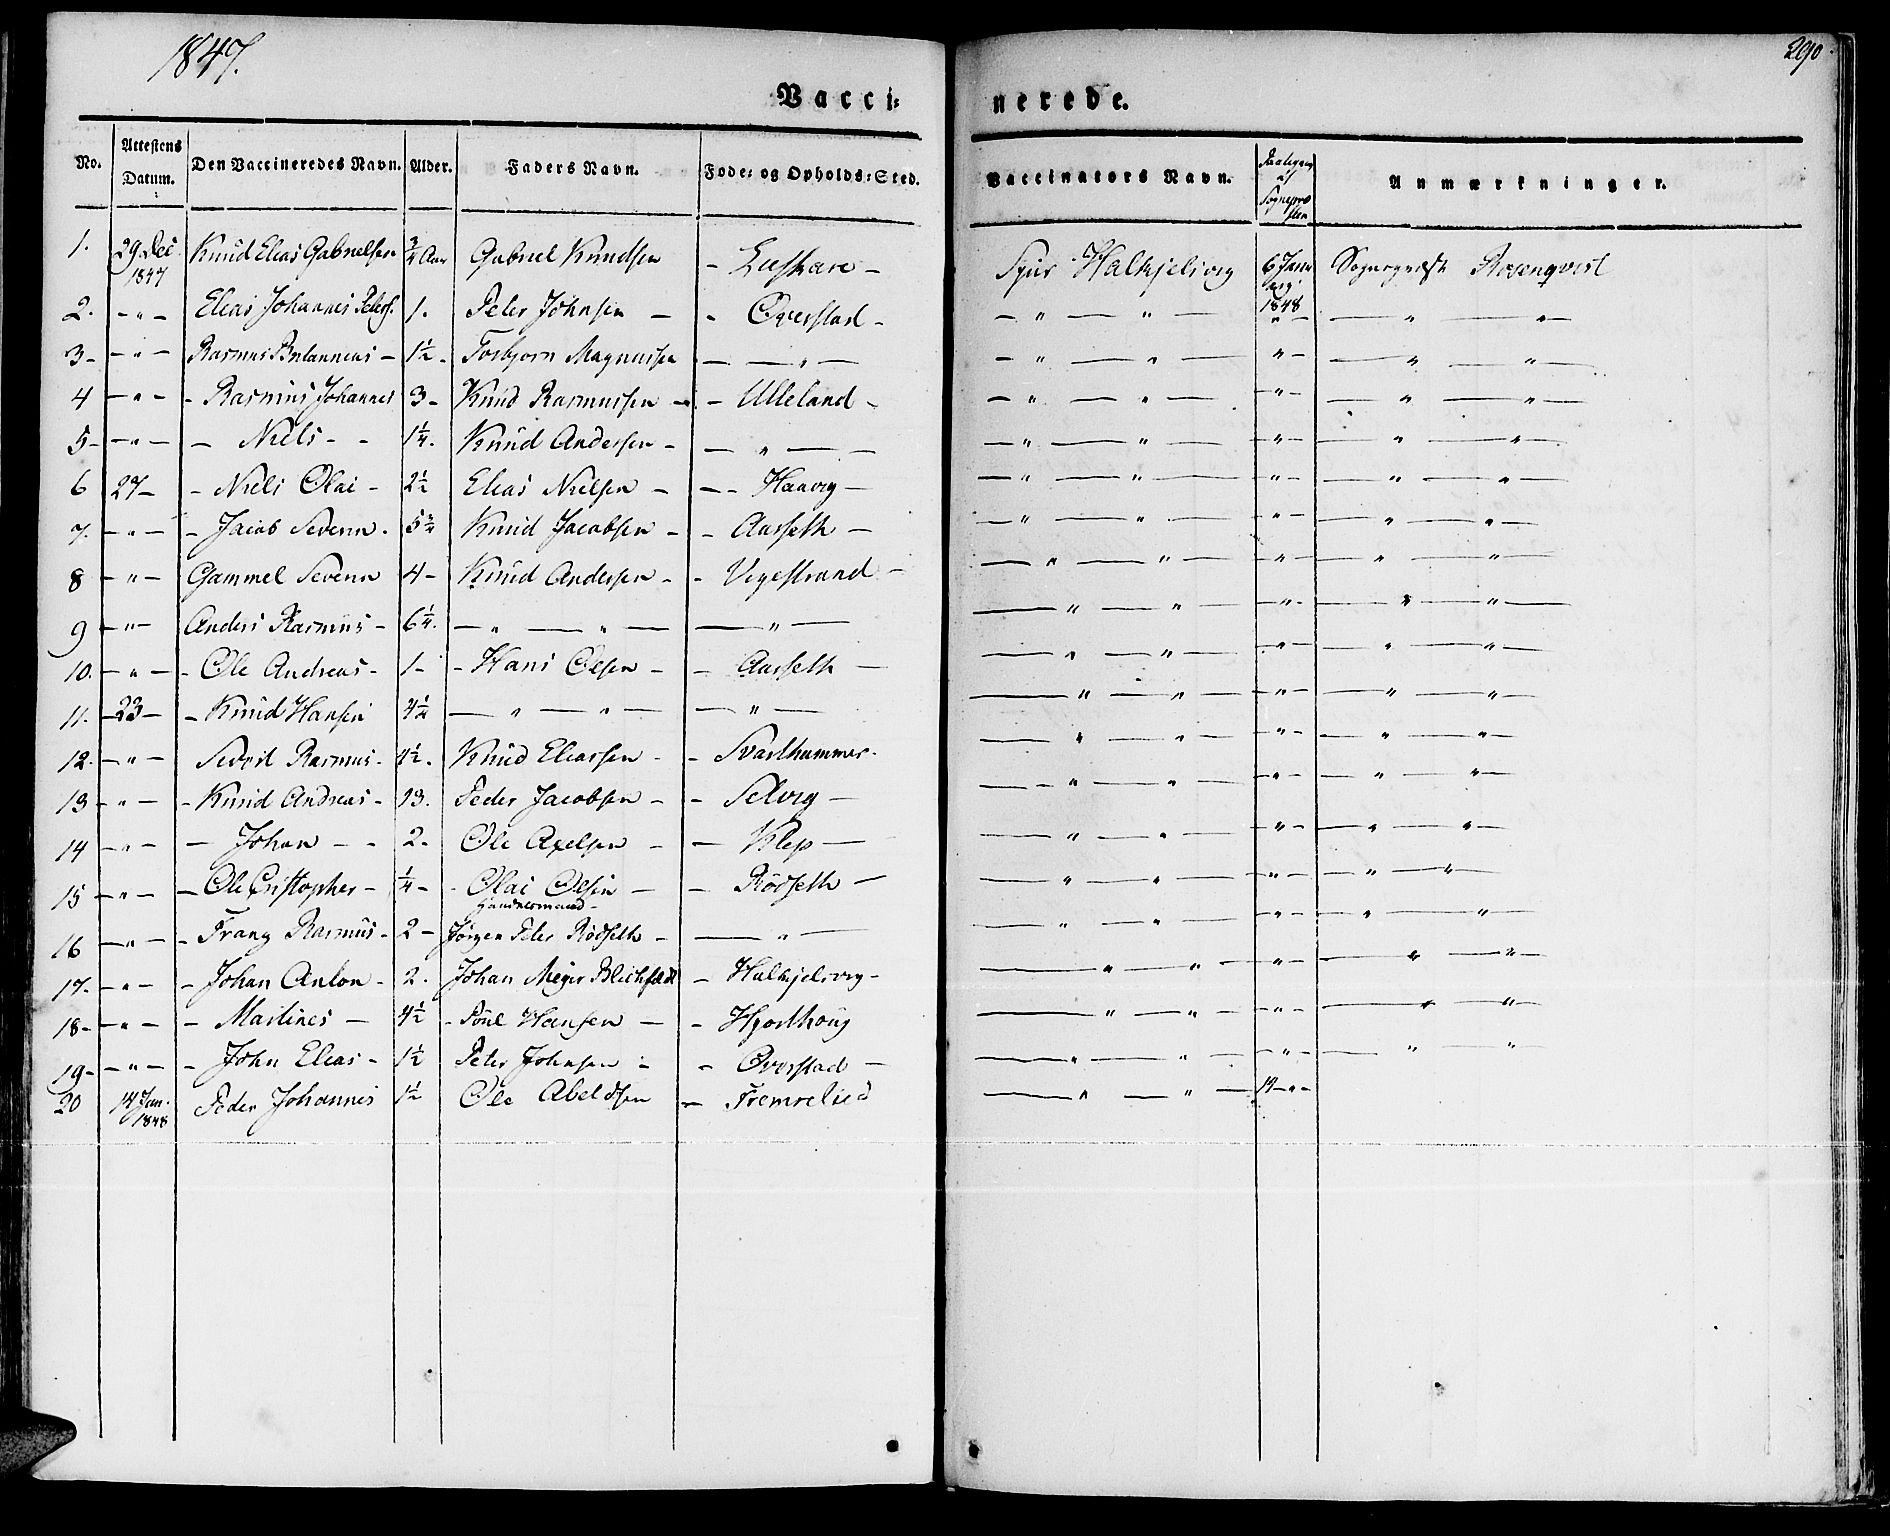 1847.
290
Vacci=
nerede.
No. Attestens Datum. Den Vaccineredes Navn. Alder. Faders Navn. Føde= og Opholds=Sted. Vaccinators Navn. Anmærkninger.
1. 29 Dec 1847 Knud Elias Gabrielsen 3/4 Aar Gabriel Knudsen - - Halkjelsvig 6 Janu 1848 Sogneprest Rosenqvist
2. - " - Elias Johannes Peters. 1. Peter Johnsen - - Øverstad - - " - " - " - - " - " -
3 - - " - Rasmus - 1½ - Torbjørn Magnussen - - " - - " - " - " - - " - " -
4 - " - - Rasmus Johannes 3 - Knud Rasmussen - - Ulleland - - " - " - " - - " - " -
5 - - " - - Niels - - 1¼. Knud Andersen - - " - - - " - " - " - - " - " -
6 27 - - Niels Olai - 2½ Elias Nielsen - - - Haavig - - " - " - " - - " - " -
7. - " - - Jacob Severin. 5¾ Knud Jacobsen - - Aasseth - - " - " - " - - " - " -
8 - " - Gammel Severin 4 - Knud Andersen - - Vigestrand - - " - " - " - - " - " -
9 - " - Anders Rasmus - 6¼. - " - " - - " - - " - " - " - - " - " -
10. - " - - Ole Andreas - 1 - - Hans Olsen - - Aasseth - - " - " - " - - " - " -
11. - 23 - - Knud Hansen 4¼ - " - " - - " - - " - " - " - - " - " -
12. - " - Sivert Rasmus - 4½. Knud Eliassen - - Svarthammer. - " - " - " - - " - " -
13 - " - - Knud Andreas - 13. Peder Jacobsen - - Selvig - - " - " - " - - " - " -
14 - " - - Johan - - 2. Ole Axelsen - - Klep - - " - " - " - - " - " -
15 - " - - Ole Cristopher - ¼ - - Olai Olsen - - Rödseth - - " - " - " - - " - " -
16 - " - - Franz Rasmus - 2 - Jörgen Peter Rödseth - - " - - " - " - " - - " - " -
17. - " - - Johan Anton - 2. Johan Meyer Blichfeldt - Halkjelsvig - - " - " - " - - " - " -
18 - - " - - Martines - 4½ - Poul Hansen - - Hjorthoug - " - " - " - - " - " -
19 - - " - - John Elias - 1½ Peter Johnsen - - Øverstad - - " - " - " - - " - " -
20 14 Jan. 1848 Peder Johannes 1½ Ole Abeldsen - Fremrelied - " - " - 14 - " -